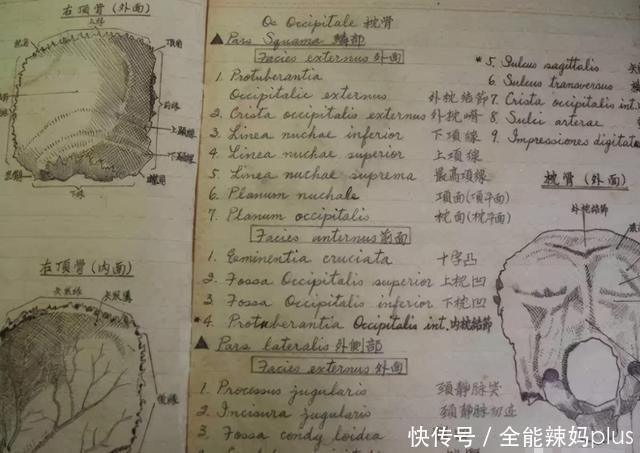 右頂骨(外面)
上縁
頂角
前縁
上顳線
下顳線
下縁
右頂骨(内面)
矢状縁
後縁
Os Occipitale 枕骨
▲ Pars Squama 鱗部
Facies externus 外面
1. Protuberantia
Occipitalic externus 外枕結節
2. Crista occipitalis externus 外枕嵴
3. Linea nuchae inferior 下項線
4. Linea nuchae superior 上項線
5. Linea nuchae suprema 最高項線
6. Planum nuchale 項面(項平面)
7. Planum occipitalis 枕面(枕平面)
Facies anternus 前面
1. Eminentia cruciata 十字凸
2. Fossa Occipitalis superior 上枕凹
3. Fossa Occipitalis inferior 下枕凹
*4. Protuberantia Occipitalis int. 内枕結節
▲ Pars lateralis 外側部
Facies externus 外面
1. Processus jugularis 頚静脉突
2. Incisura jugularis 頚静脉切迹
3. Fossa condyloidea
*5. Sulcus sagittalis
6. Sulcus transversus
7. Crista occipitalis int.
8. Sulci arterae
9. Impressiones digitata
枕骨(外面)
外枕結節
快传号 / 全能辣妈plus